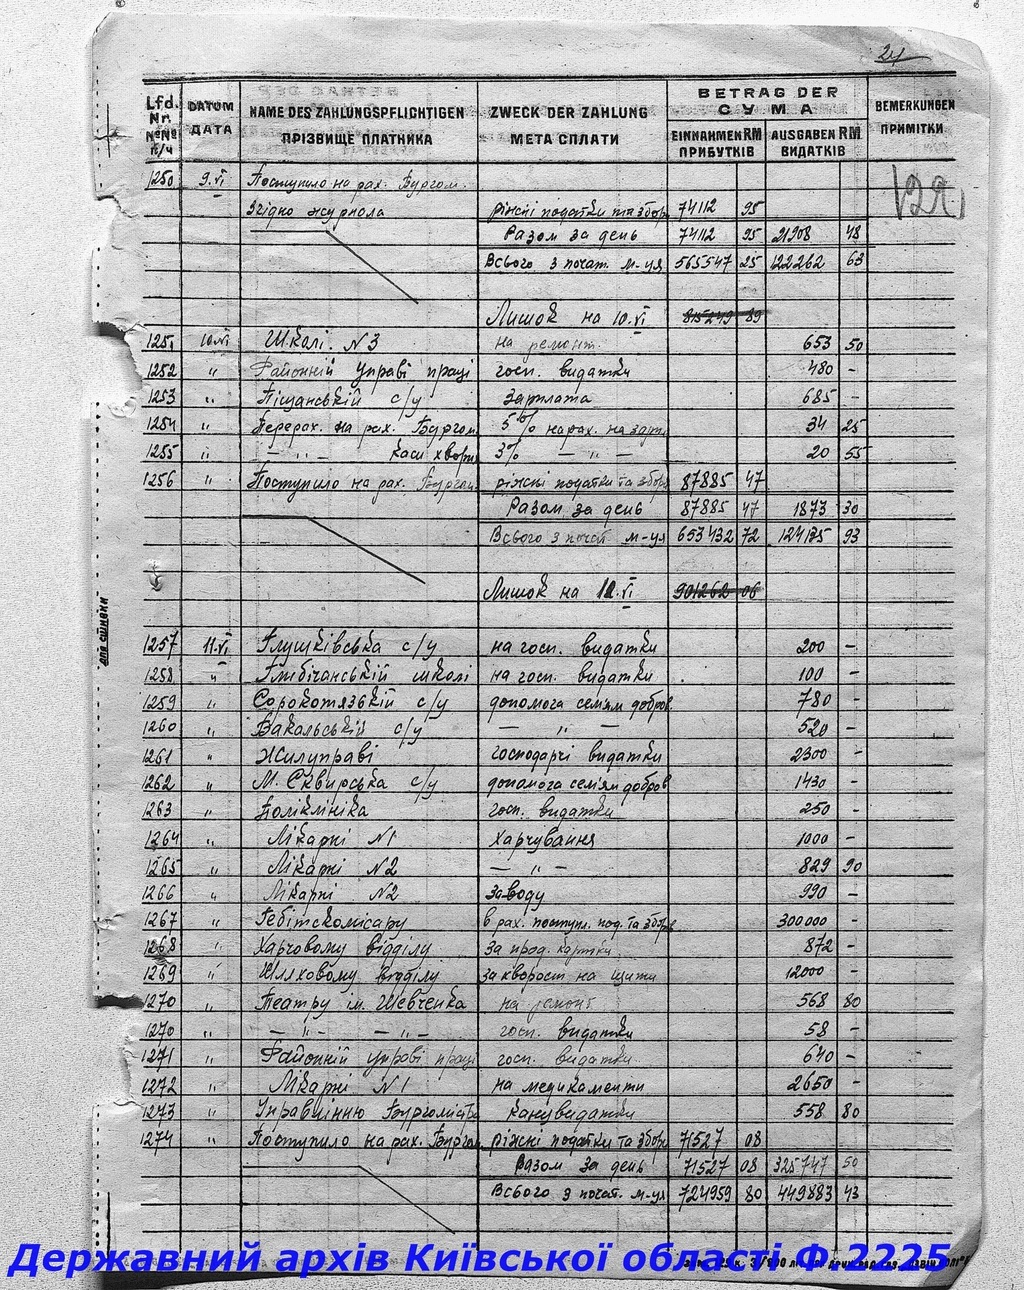 24
Lfd. Nr. №№ п/ч DATUM ДАТА NAME DES ZAHLUNGSPFLICHTIGEN ПРІЗВИЩЕ ПЛАТНИКА ZWECK DER ZAHLUNG МЕТА СПЛАТИ BETRAG DER СУМА EINNAHMEN RM ПРИБУТКІВ AUSGABEN RM ВИДАТКІВ BEMERKUNGEN ПРИМІТКИ
1250 9.VI Поступило на рах. Бургом.
Згідно журнала ріжні податки та збори 74112 95
Разом за день 74112 95 21908 48
Всього з почат. м-ця 565547 25 122262 63
Лишок на 10.VI 815249 89
1251 10.VI Школі. N3 на ремонт. 653 50
1252 " Районній Управі праці госп. видатки 480 –
1253 " Піщанській с/у Зарплата 685 –
1254 " Перерах. на рах. Бургом. 5% на рах. на зарп. 34 25
1255 " – " – Каси хворих 3% – " – 20 55
1256 " Поступило на рах. Бургом. ріжні податки та збори 87885 47
Разом за день 87885 47 1873 30
Всього з почат. м-ця 653432 72 124135 93
Лишок на 11.VI 901262 06
1257 11.VI Глушківська с/у на госп. видатки 200 –
1258 " Глибічанській школі на госп. видатки 100 –
1259 " Сорокотязькій с/у допомога семіям добров. 780 –
1260 " Вакальській с/у – " – 520 –
1261 " Жилуправі господарчі видатки 2300 –
1262 " М. Сквирська с/у допомога семіям добров 1430 –
1263 " Поліклініка госп. видатки 250 –
1264 " Лікарні N1 Харчування 1000 –
1265 " Лікарні N2 – " – 829 90
1266 " Лікарні N2 за воду 990 –
1267 " Гебітскомісару в рах. поступл. под. та зборів 300000 –
1268 " Харчовому відділу за прод. картки 872 –
1269 " Шляховому відділу за хворост на щити 12000 –
1270 " Театру ім. Шевченка на ремонт 568 80
1270 " – " – – " – госп. видатки 58 –
1271 " Районній управі праці госп. видатки 640 –
1272 " Лікарні N1 на медикаменти 2650 –
1273 " Управлінню Бургомістра канц видатки 558 80
1274 " Поступило на рах. Бургом. ріжні податки та збори 71527 08
Разом за день 71527 08 325747 50
Всього з почат. м-ця 724959 80 449883 43
Державний архів Київської області Ф.2225